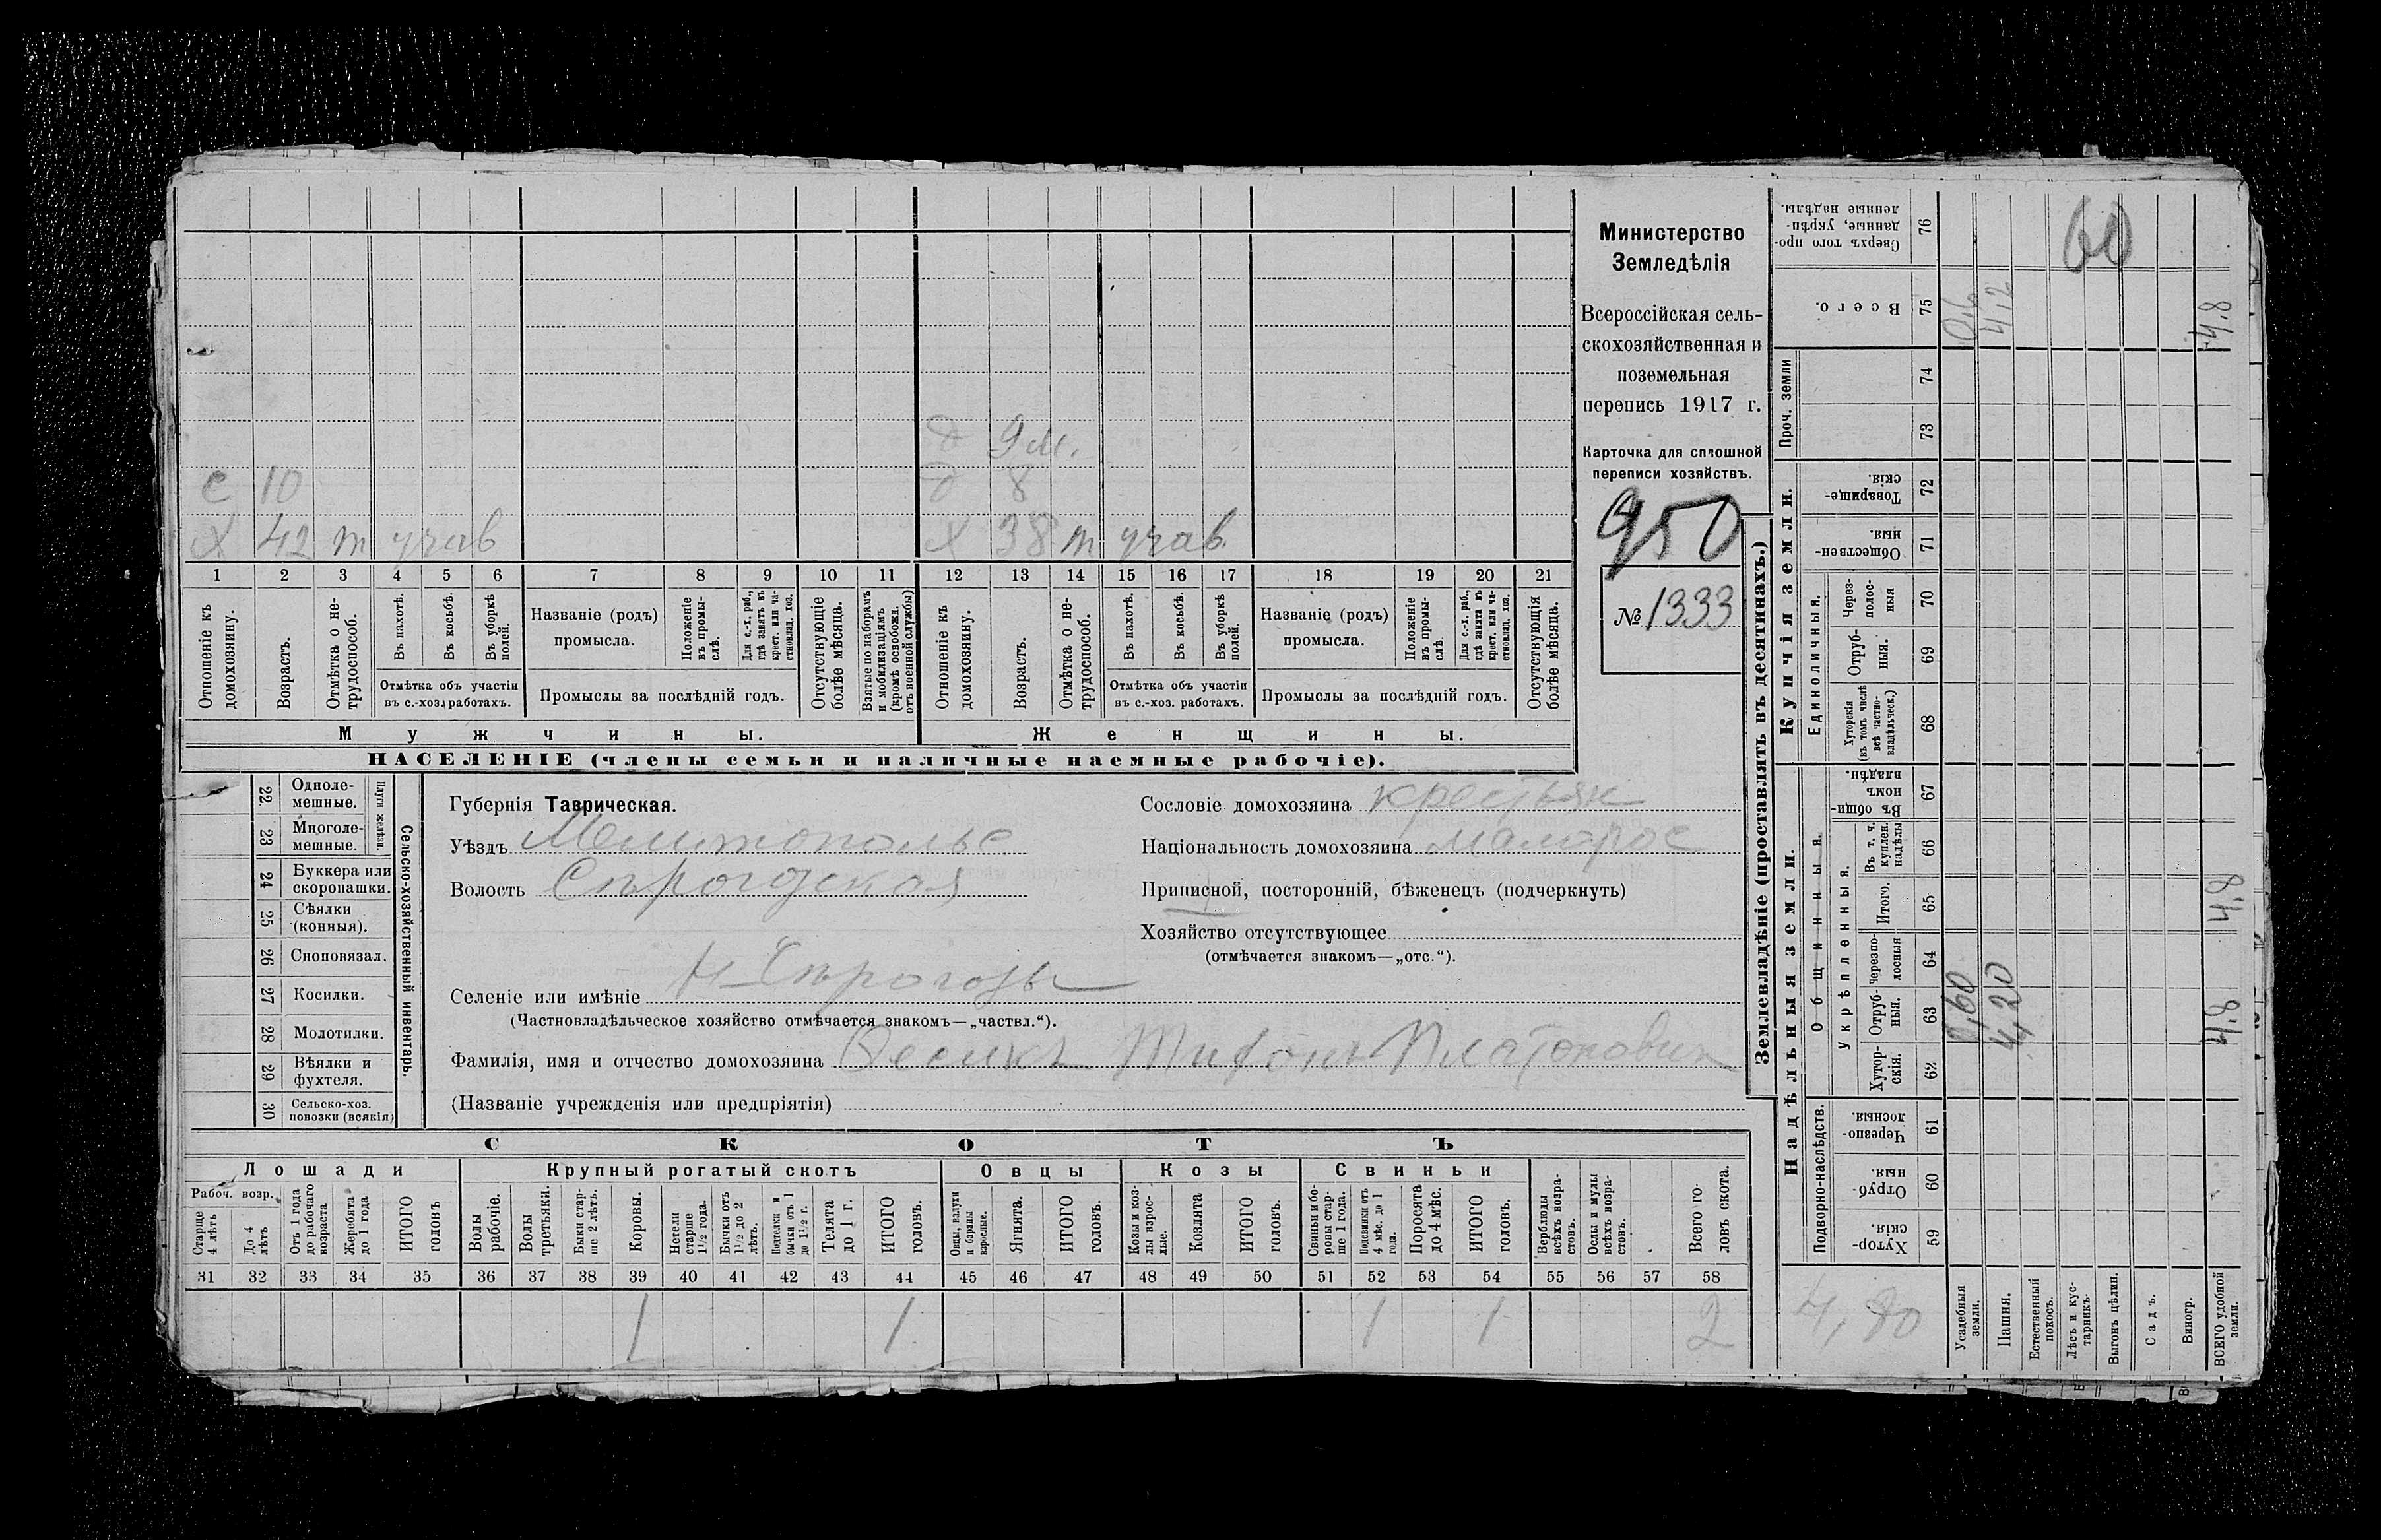 Министерство
Земледѣлія
Всероссійская сель-
скохозяйственная и
поземельная
перепись 1917 г.
Карточка для сплошной
переписи хозяйствъ.
950
№ 1333
д 9 м.
с 10 д 8
х 42 т учав х 38 т учав.
1 2 3 4 5 6 7 8 9 10 11 12 13 14 15 16 17 18 19 20 21
Отношеніе къ домохозяину.
Возрастъ.
Отмѣтка о не-трудоспособ.
Въ пахотѣ.
Въ косьбѣ.
Въ уборкѣ полей.
Отмѣтка объ участіи
въ с.-хоз. работахъ.
Названіе (родъ)
промысла.
Положеніе въ промы-слѣ.
Для с.-х. раб., гдѣ занятъ въ крест. или ча-стновлад. хоз.
Промыслы за послѣдній годъ.
Отсутствующіе болѣе мѣсяца.
Взятые по наборамъ и мобилизаціямъ (кромѣ освобожд. отъ военной службы)
Отношеніе къ домохозяину.
Возрастъ.
Отмѣтка о не-трудоспособ.
Въ пахотѣ.
Въ косьбѣ.
Въ уборкѣ полей.
Отмѣтка объ участіи
въ с.-хоз. работахъ.
Названіе (родъ)
промысла.
Положеніе въ промы-слѣ.
Для с.-х. раб., гдѣ занята въ крест. или ча-стновлад. хоз.
Промыслы за послѣдній годъ.
Отсутствующія болѣе мѣсяца.
Мужчины. Женщины.
НАСЕЛЕНІЕ (члены семьи и наличные наемные рабочіе).
Сельско-хозяйственный инвентарь.
Плуги желѣзн.
22 Однолемешные.
23 Многолемешные.
24 Буккера или скоропашки.
25 Сѣялки (конныя).
26 Сноповязал.
27 Косилки.
28 Молотилки.
29 Вѣялки и фухтеля.
30 Сельско-хоз. повозки (всякія)
Губернія Таврическая.
Уѣздъ Мелитополье
Волость Сѣрогозская
Сословіе домохозяина крестьян
Національность домохозяина малорос
Приписной, посторонній, бѣженецъ (подчеркнуть)
Хозяйство отсутствующее
(отмѣчается знакомъ—„отс.“).
Селеніе или имѣніе Н-Сѣрогозы
(Частновладѣльческое хозяйство отмѣчается знакомъ—„частвл.“).
Фамилія, имя и отчество домохозяина Платонович
(Названіе учрежденія или предпріятія)
СКОТЪ
Лошади Крупный рогатый скотъ Овцы Козы Свиньи
Рабоч. возр.
Старше 4 лѣтъ
До 4 лѣтъ
Отъ 1 года до рабочаго возраста
Жеребята до 1 года
ИТОГО головъ
Волы рабочіе.
Волы третьяки.
Быки стар-ше 2 лѣтъ.
Коровы.
Нетели старше 1½ года.
Бычки отъ 1½ до 2 лѣтъ.
Подтелки и бычки отъ 1 до 1½ г.
Телята до 1 г.
ИТОГО головъ.
Овцы, валухи и бараны взрослые.
Ягнята.
ИТОГО головъ.
Козы и коз-лы взрос-лые.
Козлята
ИТОГО головъ.
Свиньи и бо-ровы стар-ше 1 года.
Подсвинки отъ 4 мѣс. до 1 года.
Поросята до 4 мѣс.
ИТОГО головъ.
Верблюды всѣхъ возра-стовъ.
Ослы и мулы всѣхъ возра-стовъ.
Всего го-ловъ скота.
31 32 33 34 35 36 37 38 39 40 41 42 43 44 45 46 47 48 49 50 51 52 53 54 55 56 57 58
1 1 1 1 2
Землевладѣніе (проставлять въ десятинахъ.)
Надѣльныя земли.
Купчія земли.
Проч. земли
Подворно-наслѣдств.
Общинныя.
Укрѣпленныя.
Единоличныя.
59 Хутор-скія.
60 Отруб-ныя.
61 Черезпо-лосныя.
62 Хутор-скія.
63 Отруб-ныя.
64 Черезпо-лосныя
65 Итого.
66 Въ т. ч. куплен. надѣлы
67 Въ общи-номъ владѣн.
68 Хуторскія (въ томъ числѣ всѣ частно-владѣльческ.)
69 Отруб-ныя.
70 Через-полос-ныя
71 Обществен-ныя.
72 Товарище-скія.
73
74
75 Всего.
76 Сверхъ того про-данные, укрѣп-ленные надѣлы.
Усадебныя земли. 0,60 0,6
Пашня. 4,20 4,2
Естественный покосъ.
Лѣсъ и кус-тарникъ.
Выгонъ цѣлин.
Садъ.
Виногр.
ВСЕГО удобной земли. 4.8 4.8 4.8
4,80
60